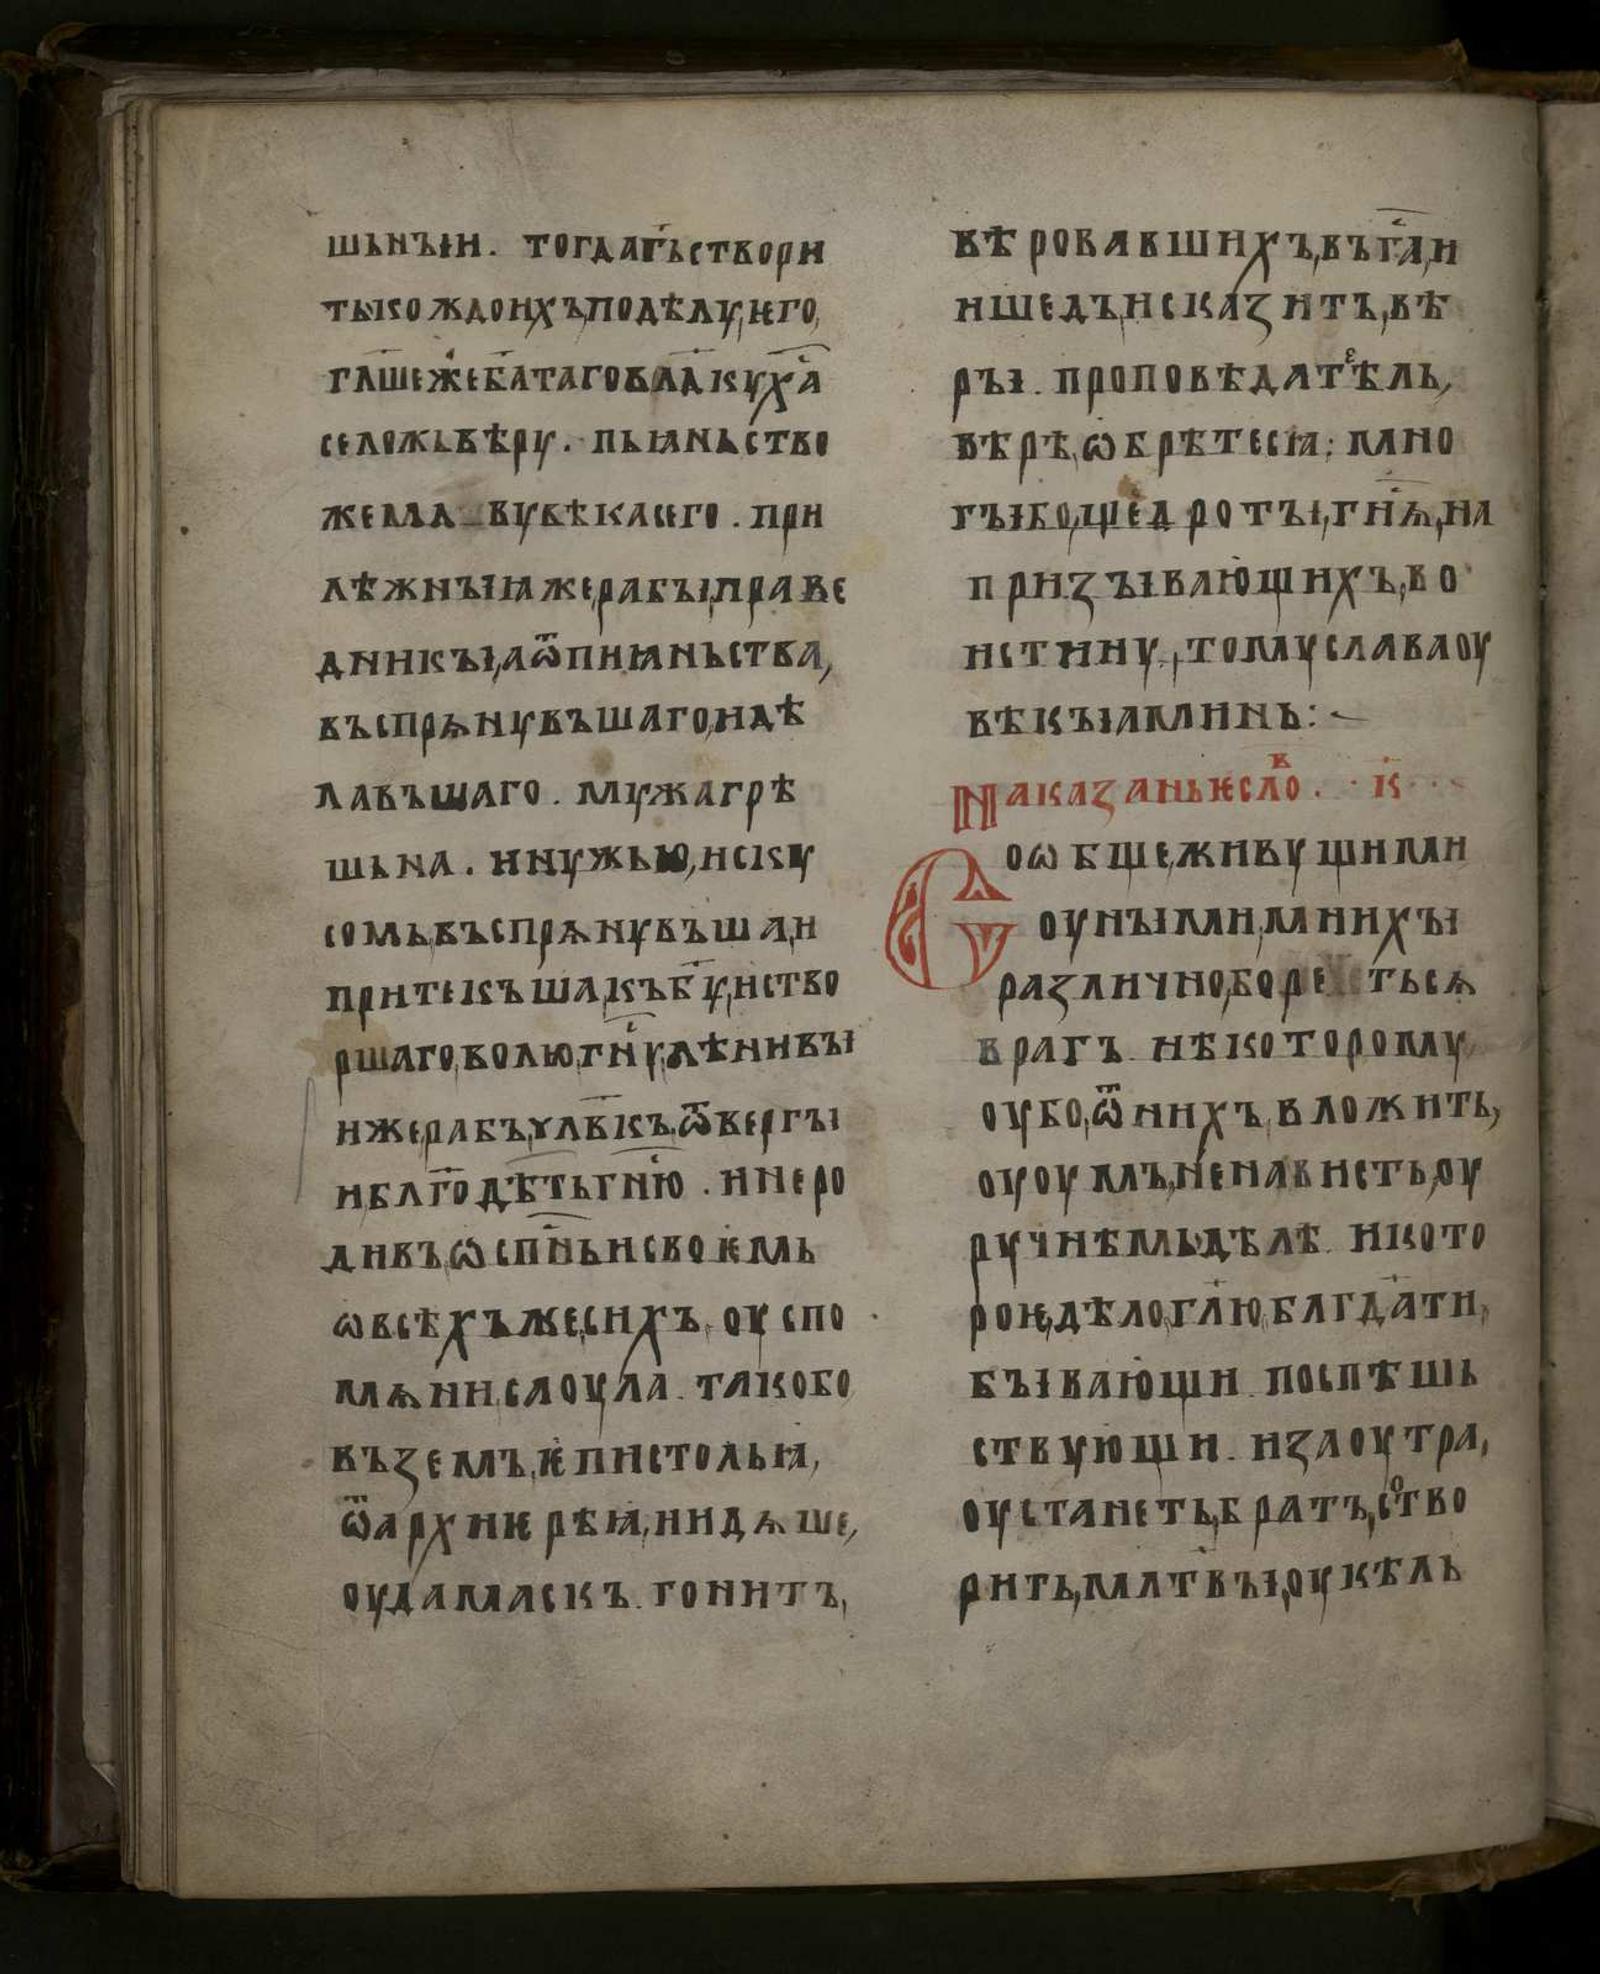 шьнъıи. тогда г҃ьствори
тыкождоихъ, подѣлу, ѥго,
гл҃ше же б҃ататаго влд҃ку х҃а
сел ложь вѣру. пьꙗньство
же мл҃а вув ѣка сего. при
лѣжнъıꙗ же, рабъı, праве
дникъı, а ѿ пиꙗньства,
въспрѧнувъшаго, и дѣ
лавъшаго. мужа грѣ
шьна. и нужью, и ску
сомь, въспрѧнувъша, и
притекъша, къ б҃у, и ство
ршаго, волю, гн҃ю, лѣнивъı
и же, рабъ, ꙋлв҃къ, ѿвергъı
и, блг҃одѣть гн҃ю. и неро
дивъ, ѡ сп҃ньи своѥмь
ѡ всѣхъ же, сихъ, оу спо
мѧни, саоула. тако бо
въземъ, ѥпистольꙗ,
ѿ архиѥрѣꙗ, и идѧше,
оу дамаскъ. гонитъ,
вѣровавшихъ, въ г҃а, и
ишедъ, исказитъ, вѣ
ръı. проповѣдатѣ꙯ль,
вѣрѣ, ѡбрѣтесꙗ: мно
гъı бо, щедротъı, гн҃ѧ, на
призъıвающихъ, во
истину, тому слава оу
вѣкъı аминь:~
Наказаньѥ сло҃в. · к҃ ···
Соѡбще, живущими
оунъıми, мнихъı
различно, бореться
врагъ. нѣкоторому,
оубо, ѿ нихъ, вложить,
оу оумъ, ненависть, оу
ручнѣмь дѣлѣ. и кото
роѥ, дѣло, гл҃ю, благд҃ати,
бъıвающи. поспѣшь
ствующи. и заоутра,
оустанеть, братъ, ство
рить, млт҃въı, оу кѣль